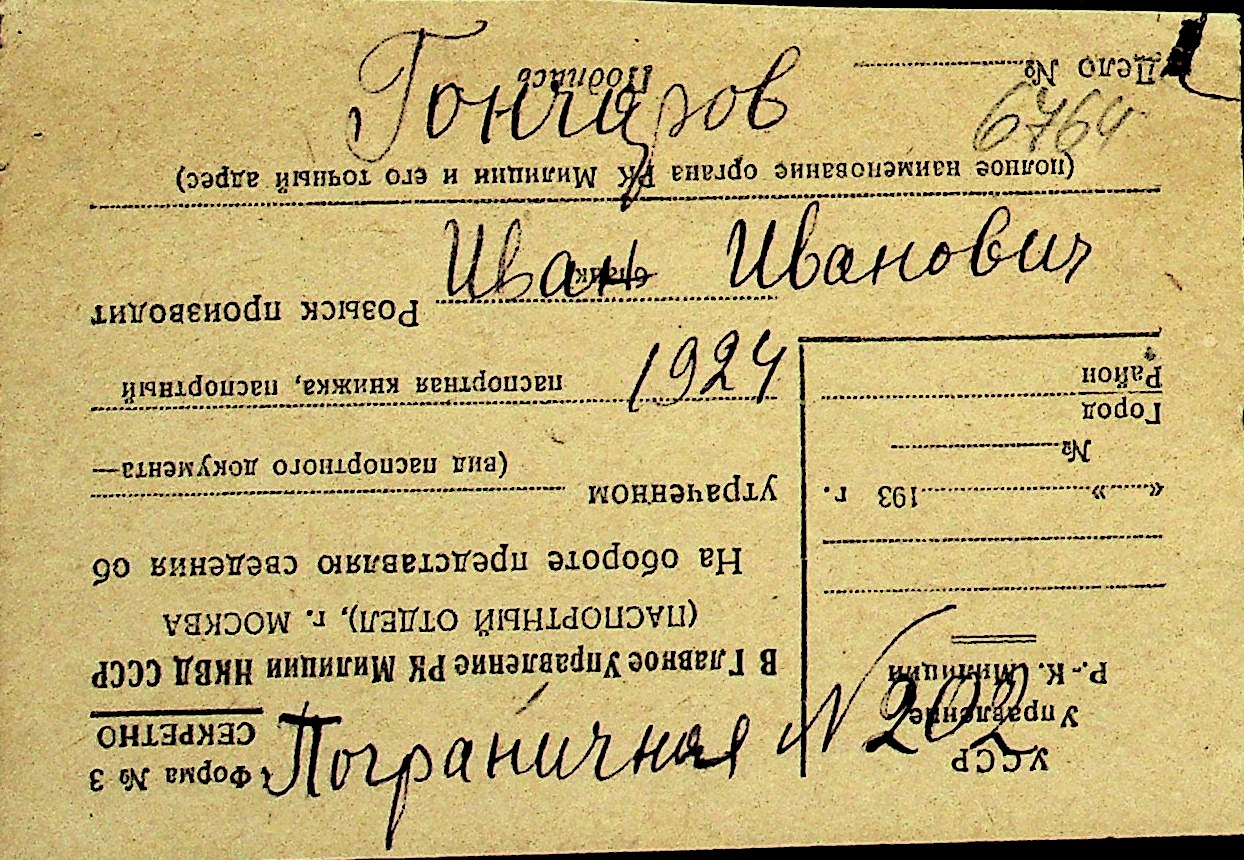 Гончаров
6764
Иван Иванович
1924
Пограничная N 202
УССР
Управление
Р.-К. Милиции
"....." 193 г.
№
Город
Район
Форма № 3
СЕКРЕТНО
В Главное Управление РК Милиции НКВД СССР
(ПАСПОРТНЫЙ ОТДЕЛ), г. МОСКВА
На обороте представляю сведения об
утраченном
(вид паспортного документа—
паспортная книжка, паспортный
бланк)
Розыск производит
(полное наименование органа РК Милиции и его точный адрес)
Дело №
Подпись